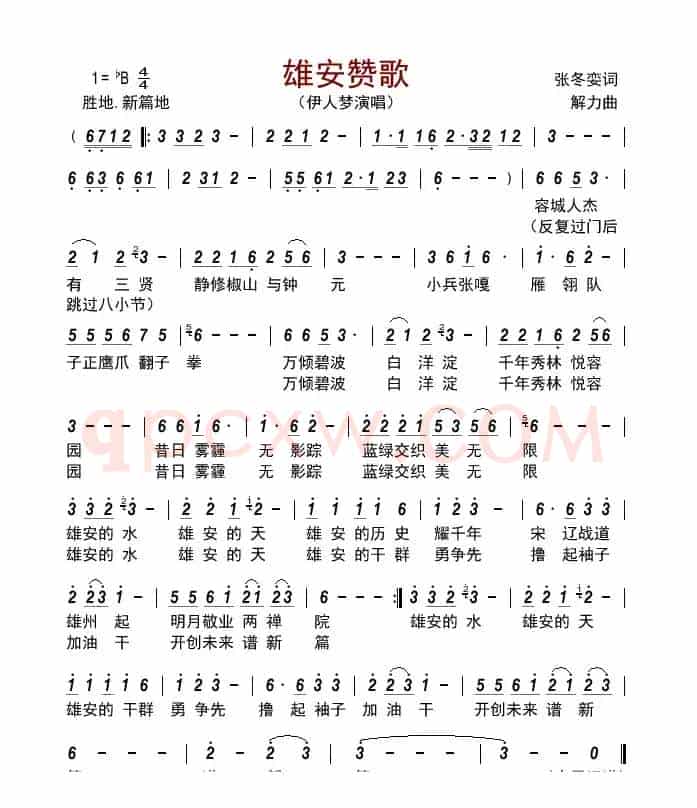 雄安赞歌
1=♭B 4/4
张冬娈词
胜地.新篇地
（伊人梦演唱）
解力曲
( 6712 ‖: 3 3 2 3 - | 2 2 2 1 2 - | 1·1 1 16 2·32 12 |
6 63 6 61 | 2 31 2 - | 55 61 2·1 23 | 6 - - ) | 6 6 5 3· |
容城人杰
（反复过门后
2 1 2 3· | 2 2 1 6 2 56 | 3 - - - | 3 6 1 6 1 2 2 |
有 三 贤 静修椒山 与钟 元 小兵张嘎 雁 翎 队
跳过八小节）
5 5 5 6 7 5 | 6 - - - | 6 6 5 3· | 21 2 3 - | 2 2 1 6 2 56 |
子正鹰爪 翻子 拳 万倾碧波 白 洋 淀 千年秀林 悦容
万倾碧波 白 洋 淀 千年秀林 悦容
3 - - - | 6 6 1 6 1 6· | 1· 3 2 - | 2 2 2 1 53 56 | 6 - - - |
qpcxw.COM
园 昔日 雾霾 无 影踪 蓝绿交织 美 无 限
园 昔日 雾霾 无 影踪 蓝绿交织 美 无 限
3 3 2 3· | 2 2 1 2· | 1 1 1 1 6 | 2 2 3 - | 6· 6 3 3 3 |
雄安的 水 雄 安 的 天 雄 安 的历 史 耀千年 宋 辽战道
雄安的 水 雄 安 的 天 雄 安 的干 群 勇争先 撸 起袖子
2 23 1 - | 5 5 6 1 2 23 | 6 - - - :‖ 3 3 2 3· | 2 2 1 2· |
雄州 起 明月敬业 两 禅 院 雄安的 水 雄安的 天
加油 干 开创未来 谱 新 篇
1 1 1 1 6 | 2 2 3 - | 6· 6 3 3 3 | 2 23 1 - | 5 5 6 1 21 23 |
雄安的 干群 勇 争先 撸 起 袖子 加 油 干 开创未来 谱 新
6 - - - | 2 - 2 3 | 6 - - - | 3 - - 0 ‖